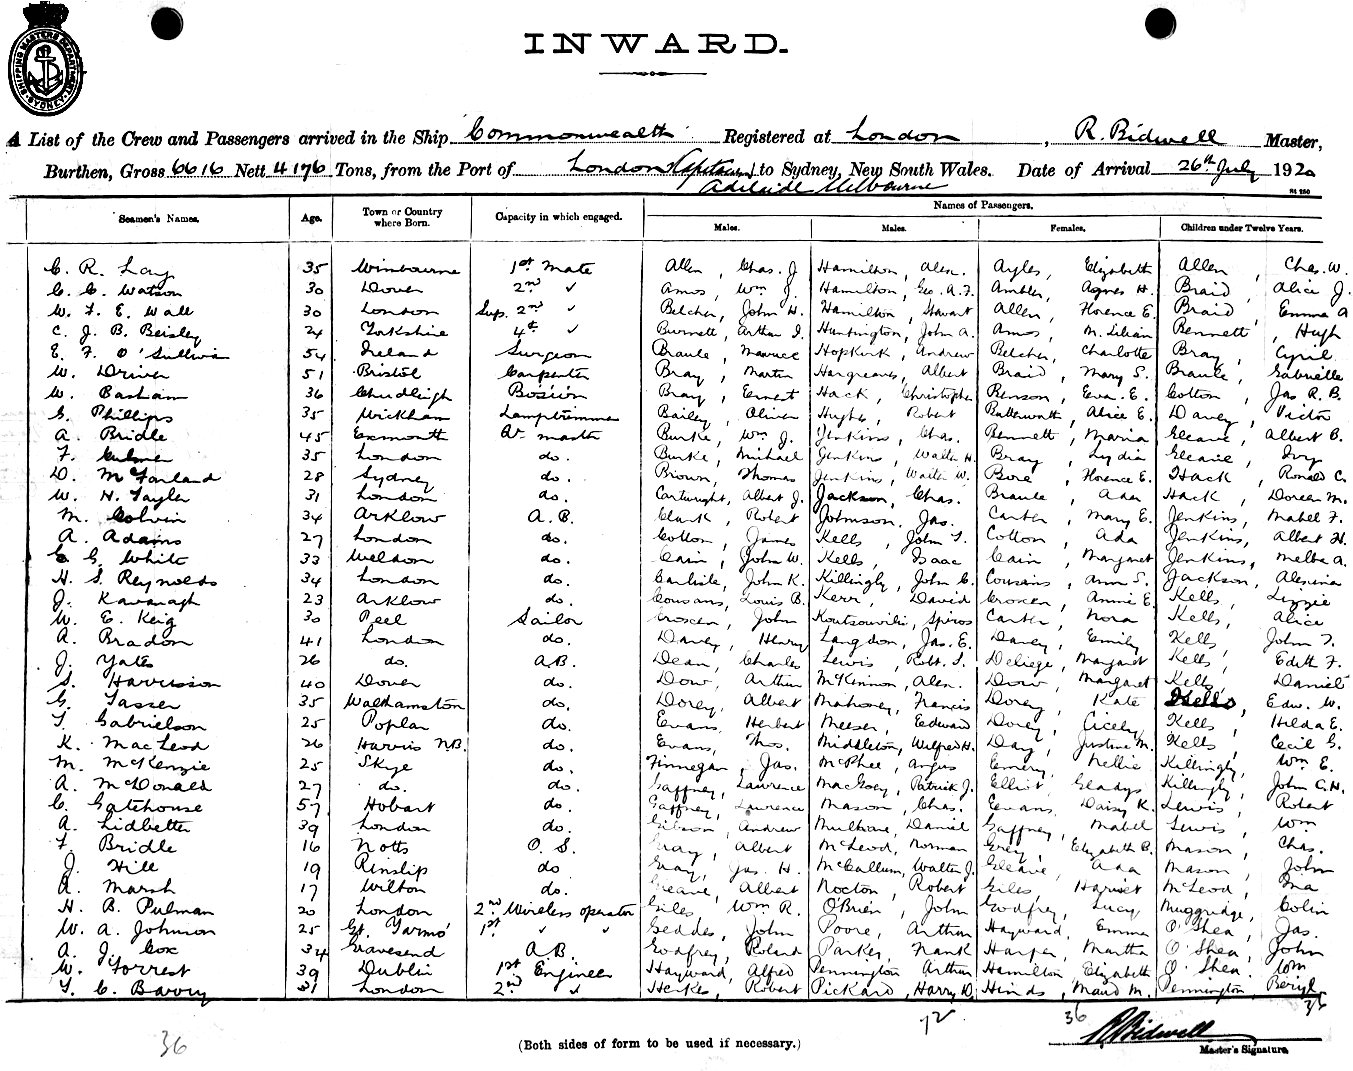 SHIPPING MASTERS DEPARTMENT SYDNEY
INWARD.
A List of the Crew and Passengers arrived in the Ship Commonwealth Registered at London, R. Bidwell Master,
Burthen, Gross 6616 Nett 4176 Tons, from the Port of London Capetown to Sydney, New South Wales. Date of Arrival 26th July 1920
Adelaide Melbourne
Seamen's Names. Age. Town or Country where Born. Capacity in which engaged. Names of Passengers.
Males. Males. Females. Children under Twelve Years.
C. R. Lay 35 Wimbourne 1st Mate Allen, Chas. J. Hamilton, Alex. Ayles, Elizabeth Allen, Chas. W.
C. C. Watson 30 Dover 2nd ✓ Amos, Wm J. Hamilton, Geo. A. F. Ambler, Agnes H. Braid, Alice J.
W. F. E. Wall 30 London Sup. 2nd ✓ Belcher, John H. Hamilton, Stewart Allen, Florence E. Braid, Emma A
C. J. B. Beisley 24 Yorkshire 4th ✓ Burnett, Arthur I. Huntington, John A. Amos, M. Lilian Bennett, Hugh
E. F. O'Sullivan 54 Ireland Surgeon Braule, Maurice Hopkirk, Andrew Belcher, Charlotte Bray, Cyril
W. Driver 51 Bristol Carpenter Bray, Martin Hargreaves, Albert Braid, Mary S. Braule, Gabrielle
W. Basham 36 Chudleigh Bosun Bray, Ernest Hack, Christopher Benson, Eva. E. Cotton, Jas R. B.
G. Phillips 35 Wickham Lamptrimmer Bailey, Oliver Hughes, Robert Butterworth, Alice E. Davey, Victor
A. Bridle 45 Exmouth Qr. master Burke, Wm J. Jenkins, Chas. Bennett, Maria Gleave, Albert B.
F. 35 London do. Burke, Michael Jenkins, Walter H. Bray, Lydia Gleave, Ivy
D. McFarland 28 Sydney do. Brown, Thomas Jenkins, Walter W. Bore, Florence E. Hack, Ronald C.
W. H. Tayler 31 London do. Cartwright, Albert J. Jackson, Chas. Braule, Ada Hack, Doreen M.
M. Colvin 34 Arklow A.B. Clark, Robert Johnson, Jas. Carter, Mary E. Jenkins, Mabel F.
A. Adams 27 London do. Cotton, James Kells, John T. Cotton, Ada Jenkins, Albert H.
G. White 33 Weldon do. Cain, John W. Kells, Isaac Cain, Margaret Jenkins, Melba A.
H. S. Reynolds 34 London do. Carlisle, John K. Killingly, John C. Cousans, Ann S. Jackson, Alexina
J. Kavanagh 23 Arklow do. Cousans, Louis B. Kerr, David Croxen, Annie E. Kells, Lizzie
W. E. Keig 30 Peel Sailor Croxen, John Koutsouvilis, Spiros Carter, Nora Kells, Alice
A. Bradon 41 London do. Davey, Henry Langdon, Jas. E. Davey, Emily Kells, John T.
J. Yates 26 do. A.B. Dean, Charles Lewis, Robt. S. Deliege, Margaret Kells, Edith F.
S. Harrisson 40 Dover do. Dow, Arthur McKinnon, Alex. Dow, Margaret Kells, Daniel
G. Tasser 35 Walthamston do. Dorey, Albert Mahoney, Francis Dorey, Kate Kells, Edw. W.
T. Gabrielson 25 Poplar do. Evans, Herbert Meeser, Edward Dorey, Cicely Kells, Hilda E.
K. MacLeod 26 Harris N.B. do. Evans, Thos. Middleton, Wilfred H. Day, Justine M. Kells, Cecil G.
M. McKenzie 25 Skye do. Finnegan, Jas. McPhee, Angus Emery, Nellie Killingly, Wm E.
A. McDonald 27 do. do. Gaffney, Lawrence Patrick J. Elliot, Gladys Killingly, John C. H.
C. Gatehouse 57 Hobart do. Gaffney, Lawrence Mason, Chas. Evans, Daisy K. Lewis, Robert
A. Lidbetter 39 London do. Gibson, Andrew Daniel Gaffney, Mabel Lewis, Wm
F. Bridle 16 Notts O. S. Gray, Albert McLeod, Norman Grey, Elizabeth B. Mason, Chas.
J. Hill 19 Rinslip do Gray, Jas. H. McCallum, Walter J. Gleave, Ada Mason, John
A. Marsh 17 Wilton do. Gleave, Albert Nocton, Robert Giles, Harriet McLeod, Ina
H. B. Pulman 20 London 2nd Wireless operator Giles, Wm R. O'Brien, John Godfrey, Lucy Muggridge, Colin
W. A. Johnson 25 Gt. Yarmo' 1st ✓ ✓ Geddes, John Poore, Arthur Hayward, Emma O'Shea, Jas.
A. J. Cox 34 Gravesend A.B. Godfrey, Roland Parker, Frank Harper, Martha O'Shea, John
W. Forrest 39 Dublin 1st Engineer Hayward, Alfred Pennington, Arthur Hamilton, Elizabeth O'Shea, Wm
T. C. Barry 31 London 2nd ✓ Herkes, Robert Pickard, Harry D. Hinds, Maud M. Pennington, Beryl
36 72 36 36
R Bidwell
(Both sides of form to be used if necessary.) Master's Signature.